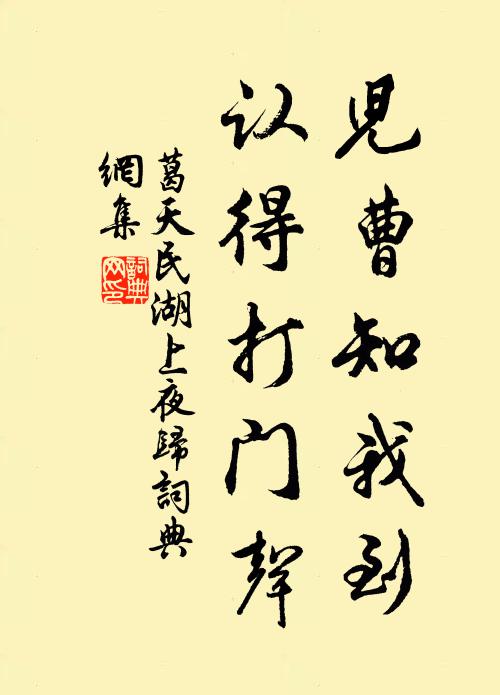 児曹知我到
认得打门聲
葛天民湖上夜歸詞典
網集
詞典網印